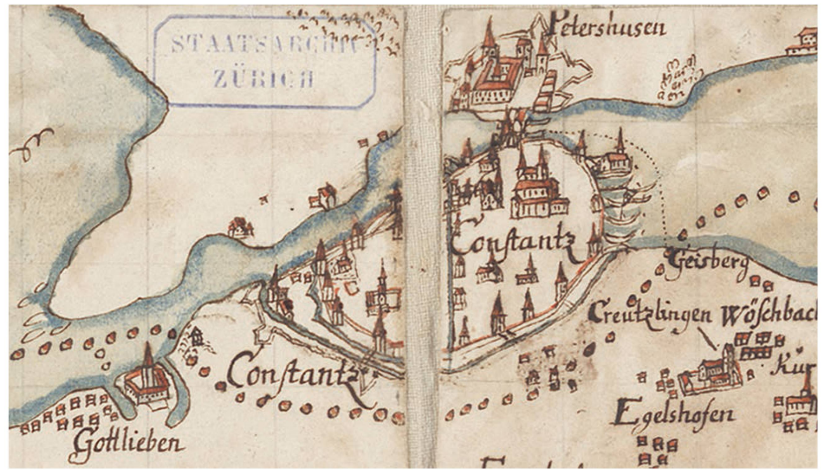 STAATSARCHIV
ZÜRICH
Petershusen
Constantz
Geisberg
Creutzlingen Wöschbach
Kur
Constantz
Egelshofen
Gottlieben